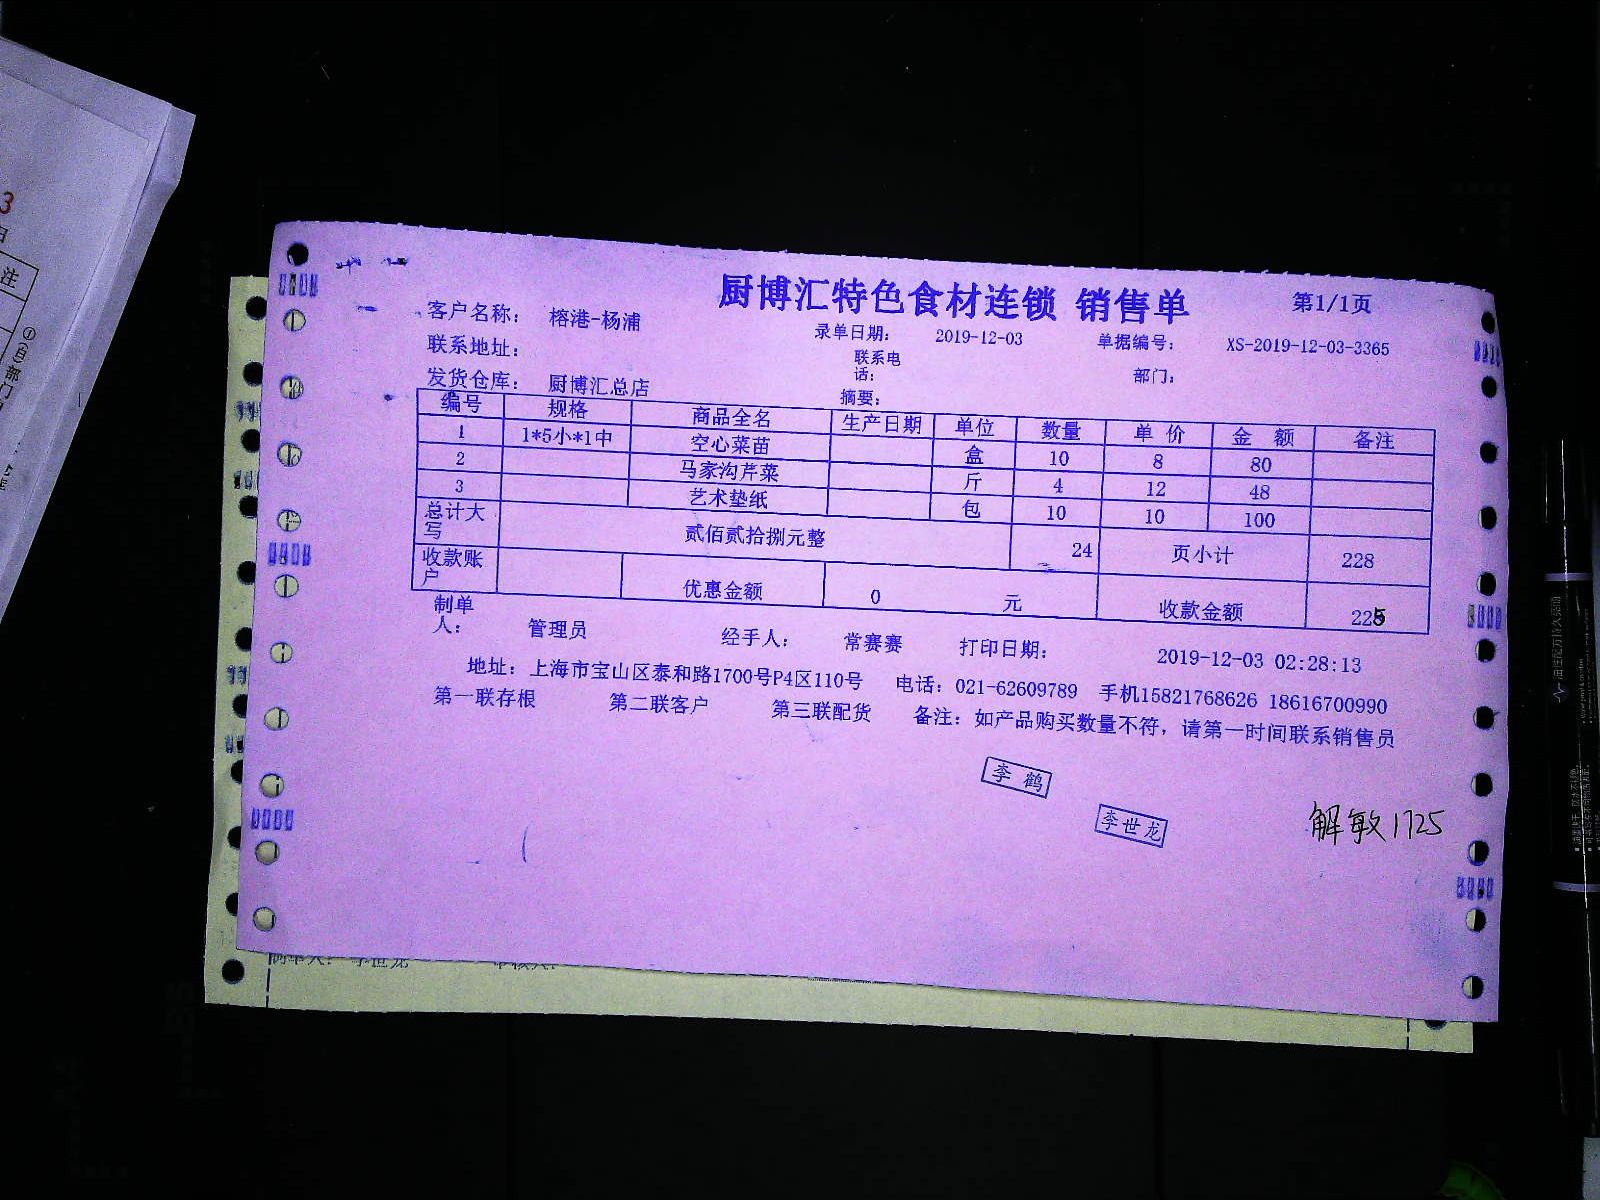 厨博汇特色食材连锁 销售单 第1/1页
客户名称： 榕港-杨浦 录单日期： 2019-12-03 单据编号： XS-2019-12-03-3365
联系地址： 联系电话： 部门：
发货仓库： 厨博汇总店 摘要：
编号 规格 商品全名 生产日期 单位 数量 单 价 金 额 备注
1 1*5小*1中 空心菜苗 盒 10 8 80
2 马家沟芹菜 斤 4 12 48
3 艺术垫纸 包 10 10 100
总计大写 贰佰贰拾捌元整 24 页小计 228
收款账户 优惠金额 0 元 收款金额 225
制单人： 管理员 经手人： 常赛赛 打印日期： 2019-12-03 02:28:13
地址：上海市宝山区泰和路1700号P4区110号 电话：021-62609789 手机15821768626 18616700990
第一联存根 第二联客户 第三联配货 备注：如产品购买数量不符，请第一时间联系销售员
李 鹤
李世龙
解敏1725
3
日
注